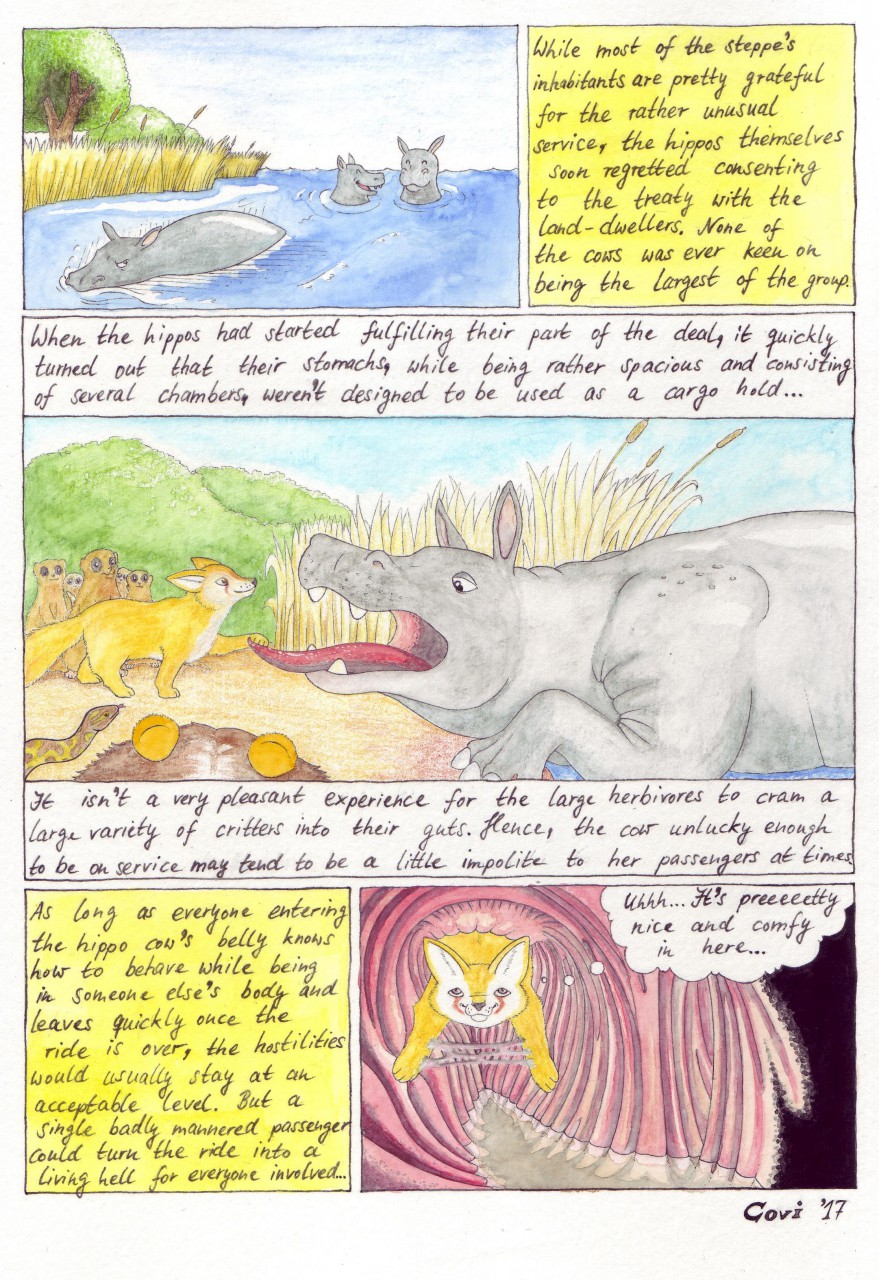 While most of the steppe's
inhabitants are pretty grateful
for the rather unusual
service, the hippos themselves
soon regretted consenting
to the treaty with the
land-dwellers. None of
the cows was ever keen on
being the largest of the group.
When the hippos had started fulfilling their part of the deal, it quickly
turned out that their stomachs, while being rather spacious and consisting
of several chambers, weren't designed to be used as a cargo hold...
It isn't a very pleasant experience for the large herbivores to cram a
large variety of critters into their guts. Hence, the cow unlucky enough
to be on service may tend to be a little impolite to her passengers at times.
As long as everyone entering
the hippo cow's belly knows
how to behave while being
in someone else's body and
leaves quickly once the
ride is over, the hostilities
would usually stay at an
acceptable level. But a
single badly mannered passenger
could turn the ride into a
living hell for everyone involved...
Uhhh... It's preeeeetty
nice and comfy
in here...
Govi '17